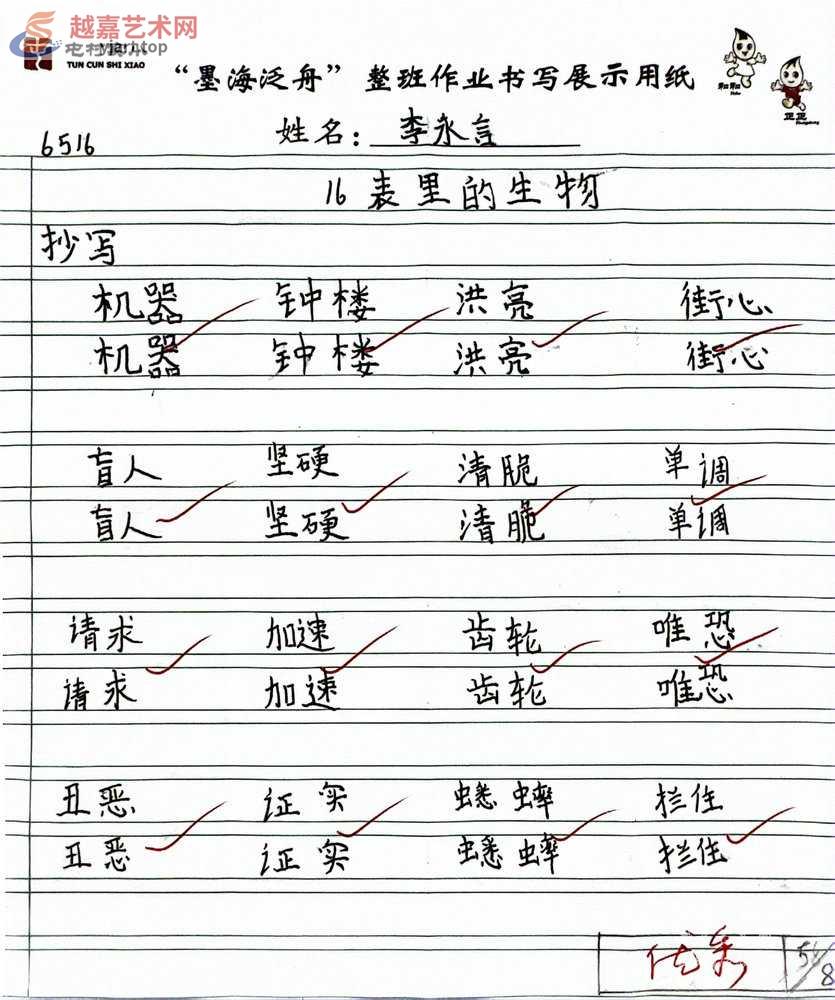 越嘉艺术网
yjart.top
TUN CUN SHI XIAO
“墨海泛舟”整班作业书写展示用纸
和和
正正
6516 姓名：李永言
16 表里的生物
抄写
机器 钟楼 洪亮 街心
机器 钟楼 洪亮 街心
盲人 坚硬 清脆 单调
盲人 坚硬 清脆 单调
请求 加速 齿轮 唯恐
请求 加速 齿轮 唯恐
丑恶 证实 蟋蟀 拦住
丑恶 证实 蟋蟀 拦住
优秀